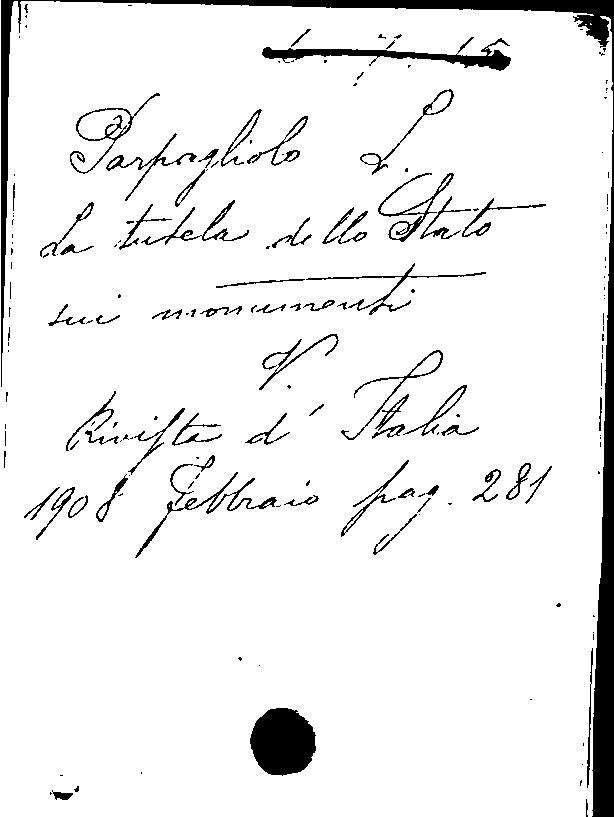 Parpagliolo L.
La tutela dello Stato
sui monumenti
V.
Rivista d' Italia
1908 Febbraio pag. 281